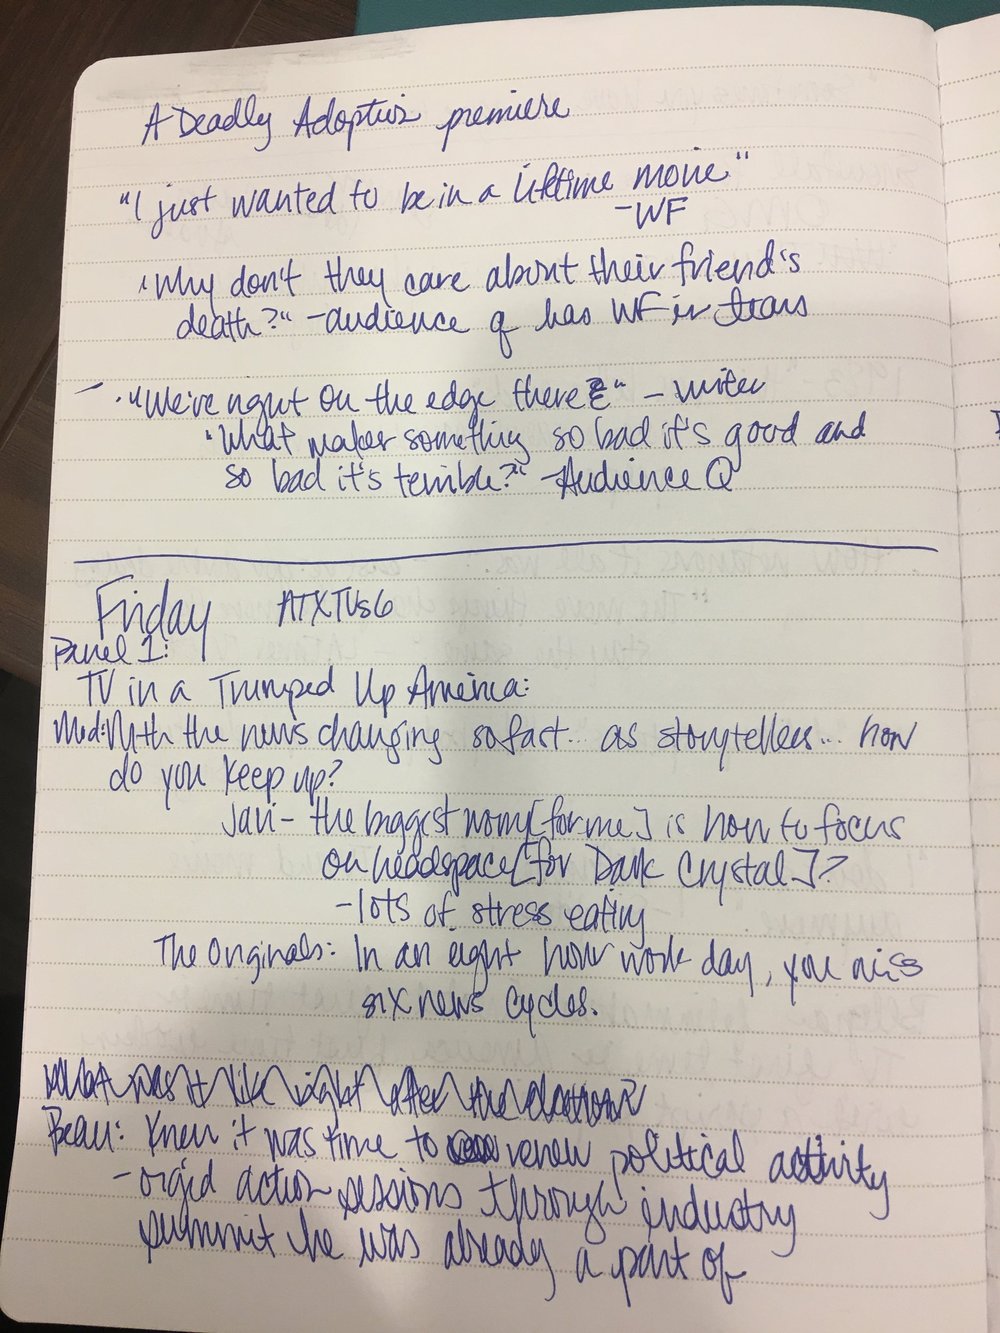 A Deadly Adoption premiere
"I just wanted to be in a Lifetime movie"
-WF
"Why don't they care about their friend's
death?" -audience q has WF in tears
- . "We're right on the edge there" - writer
"What makes something so bad it's good and
so bad it's terrible?" -Audience Q
Friday ATXTVs6
Panel 1:
TV in a Trumped Up America:
Mod: With the news changing so fast.. as storytellers... how
do you keep up?
Javi- the biggest worry [for me] is how to focus
on headspace [for Dark Crystal]?
-lots of stress eating
The Originals: In an eight hour work day, you miss
six news cycles.
What was it like right after the election?
Beau: Knew it was time to renew political activity
- org'd action sessions through industry
summit he was already a part of